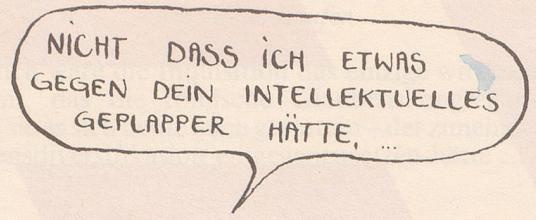 NICHT DASS ICH ETWAS
GEGEN DEIN INTELLEKTUELLES
GEPLAPPER HÄTTE, ...